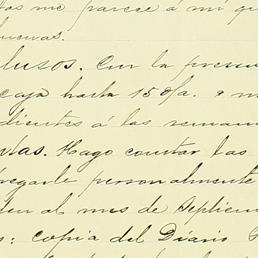 me parece a mi qu
buenas.
lusos. Con la presen
caja hasta 15 8/a. e m
dientes á las semana
vias. Hago constar las
regarle personalmente
al mes de Septiem
s: copia del Diario